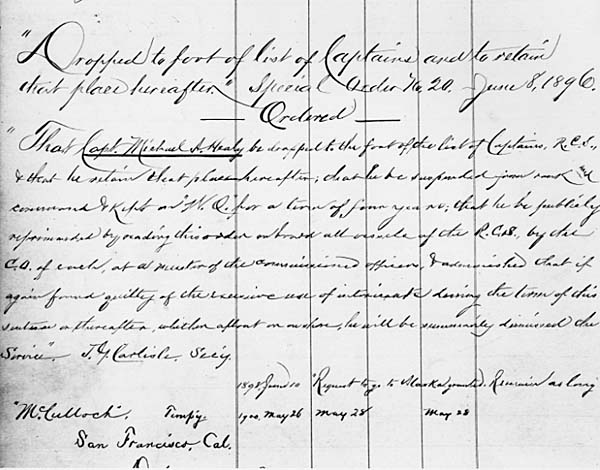 "Dropped to foot of list of Captains and to retain
that place hereafter." Special Order No. 20. June 8, 1896.
— Ordered —
"That Capt. Michael A. Healy be dropped to the foot of the list of Captains, R.C.S.,
& that he retain that place hereafter; that he be suspended from rank and
command & kept on W.O. for a term of four years; that he be publicly
reprimanded by reading this order on board all vessels of the R.C.S., by the
C.O. of each, at a muster of the commissioned officers, & admonished that if
again found guilty of the excessive use of intoxicants during the term of this
sentence or thereafter, whether afloat or on shore, he will be summarily dismissed the
Service". J. G. Carlisle, Secy.
1898 June 10 "Request to go to Alaska granted. Remain as long
"McCulloch", Temp'y. 1900. May 26 May 28 May 28
San Francisco, Cal.